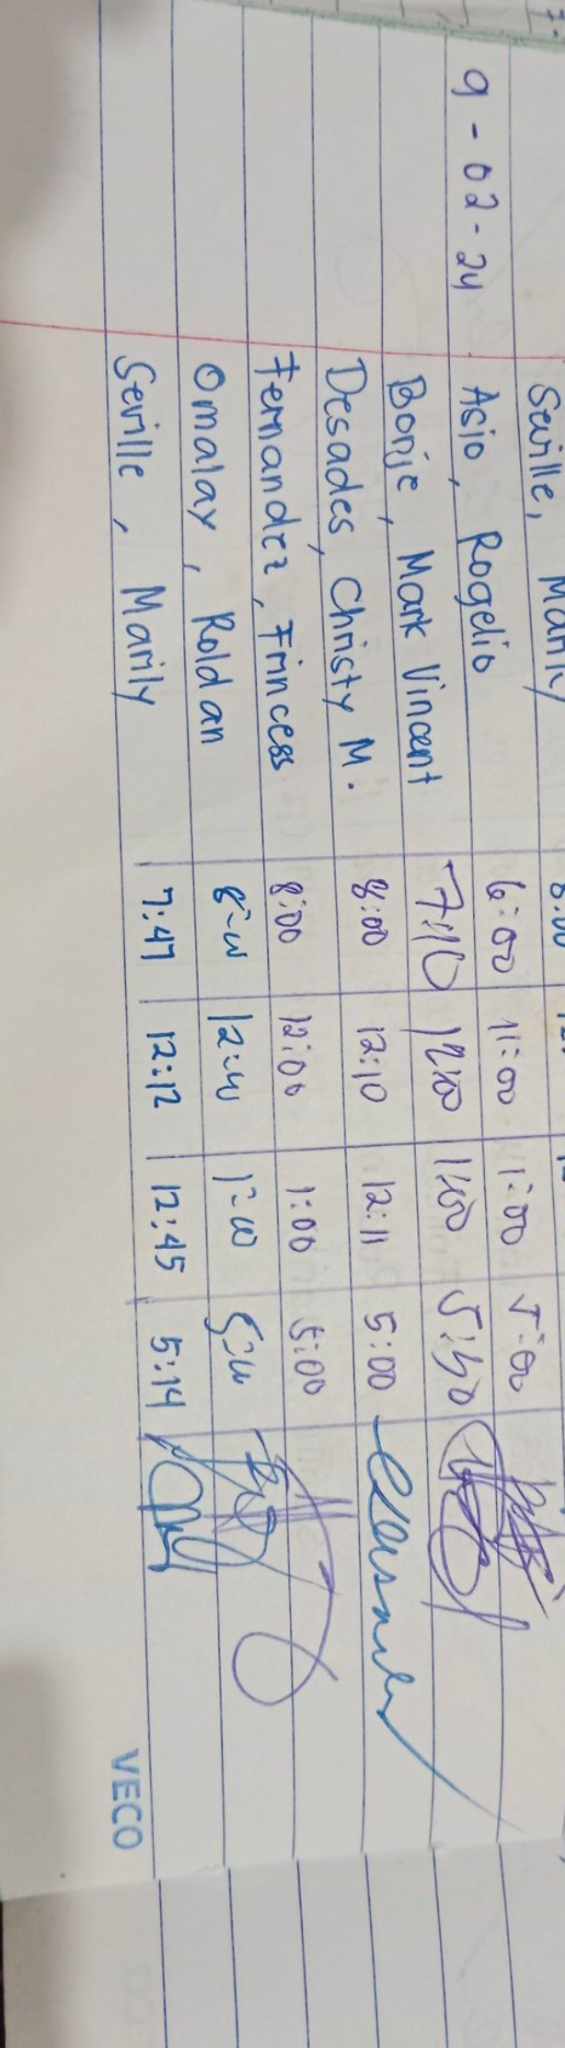 Seville, Marily 8:00
9-02-24 Asio, Rogelio 6:00 11:00 1:00 5:00
Bonje, Mark Vincent 7:10 12:00 1:00 5:30
Desades, Christy M. 8:00 12:10 12:11 5:00
Fernandez, Frincess 8:00 12:00 1:00 5:00
Omalay, Roldan 8:00 12:00 1:00 5:00
Seville, Marily 7:47 12:12 12:45 5:14
VECO